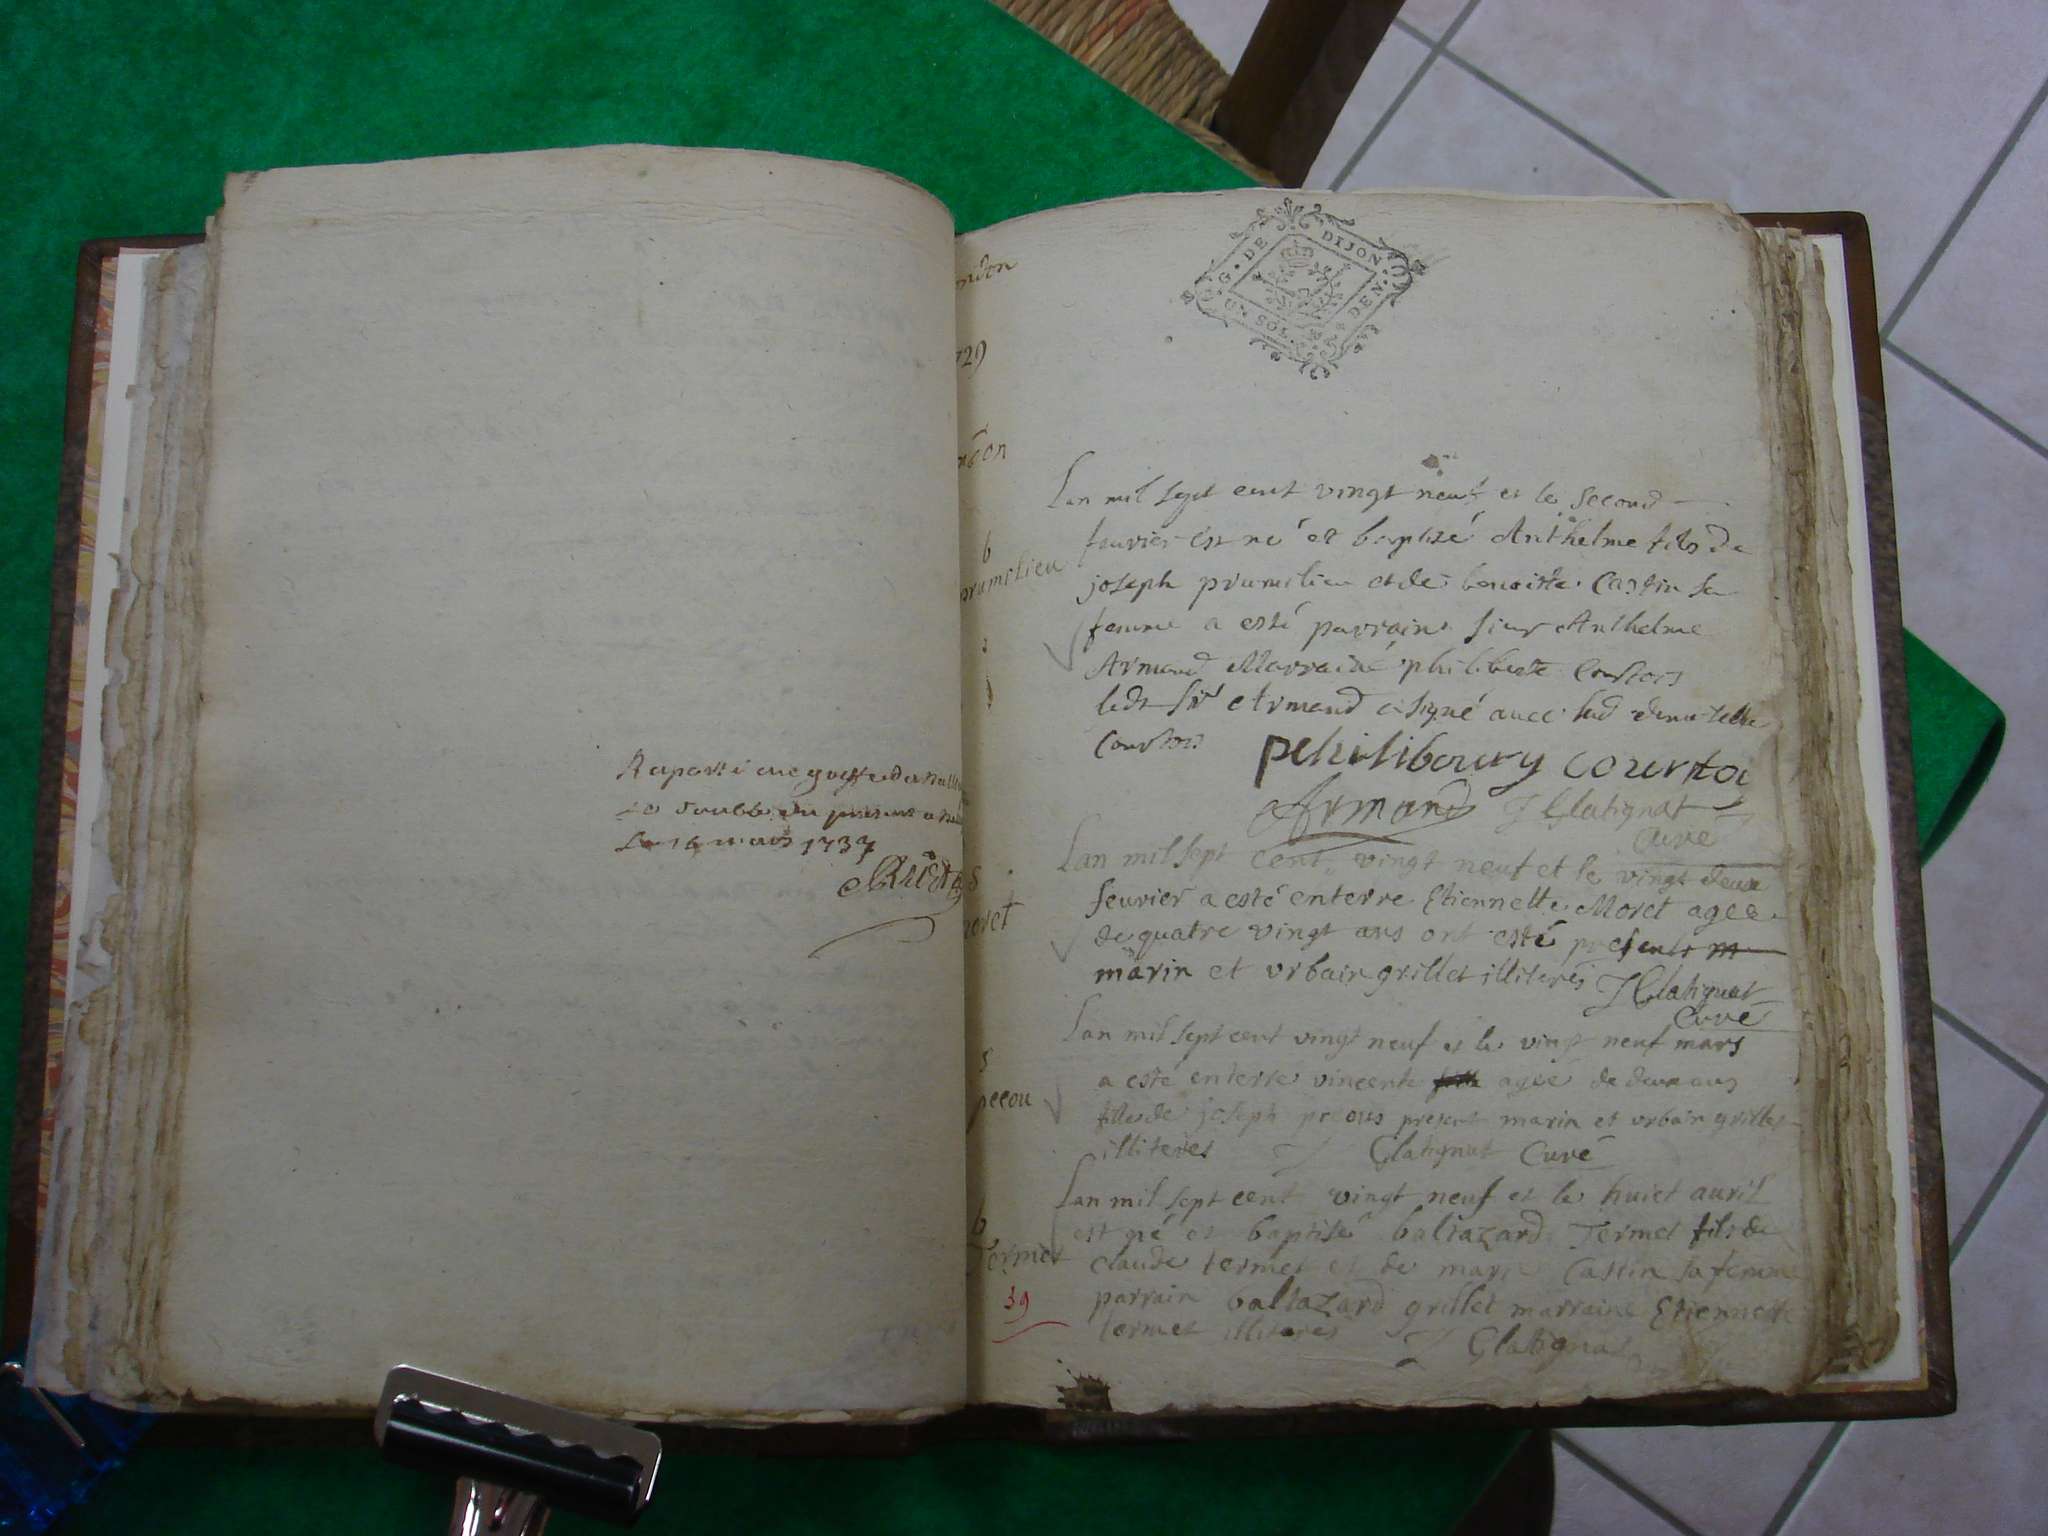 Raporté au greffe du
Le double du present
Le 16 mars 1737
G. G. DE DIJON. DEN.
UN SOL.
729
b
prumilieu
Lan mil sept cent vingt neuf et le second
feuvier est né et baptizé Anthelme fils de
joseph prumilieu et de benoiste Castin sa
femme a esté parrain sieur Anthelme
Armand Marraine philiberte Courtois
ledt sir Armand a signé avec lad demoiselle
Courtois
pehilibourg courtoi
Armand J Clatignat
Curé
s
moret
Lan mil sept cent vingt neuf et le vingt deux
feuvier a esté enterre Etiennette Moret agee
de quatre vingt ans ont esté presents m
marin et urbain grillet illiterés J Clatignat
Curé
s
pecou
Lan mil sept cent vingt neuf et le vingt neuf mars
a esté enterre vincente fille agée de deux ans
filles de joseph pecous present marin et urbain grillet
illiteres J Clatignat Curé
b
Termet
Lan mil sept cent vingt neuf et le huict auril
est né et baptisé baltazard Termet fils de
claude termet et de marie Castin sa femme
parrain baltazard grillet marraine Etiennette
termet illiteres J Clatignat
39